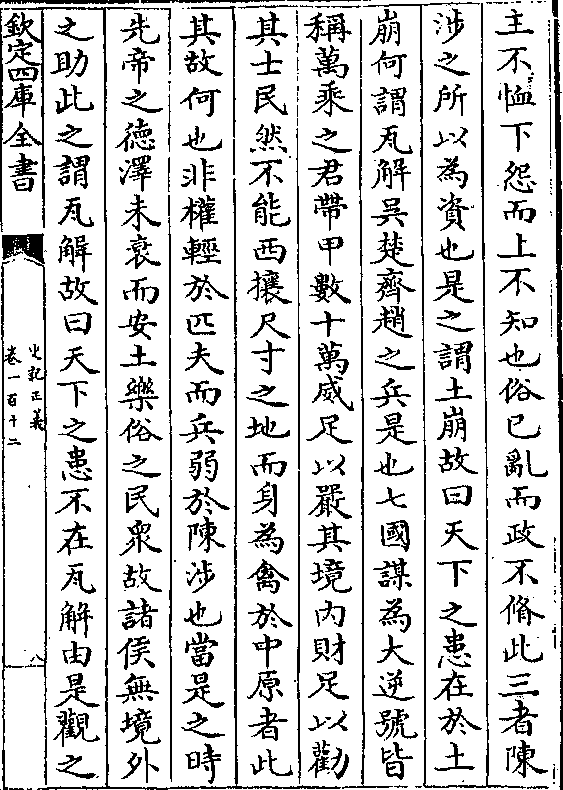 主不恤下怨而上不知也俗已亂而政不脩此三者陳
涉之所以為資也是之謂土崩故曰天下之患在於土
崩何謂瓦解吳楚齊趙之兵是也七國謀為大逆號皆
稱萬乘之君帶甲數十萬威足以嚴其境內財足以勸
其士民然不能西攘尺寸之地而身為禽於中原者此
其故何也非權輕於匹夫而兵弱於陳涉也當是之時
先帝之德澤未衰而安土樂俗之民衆故諸侯無境外
之助此之謂瓦解故曰天下之患不在瓦解由是觀之
欽定四庫全書
史記正義
卷一百十二
八